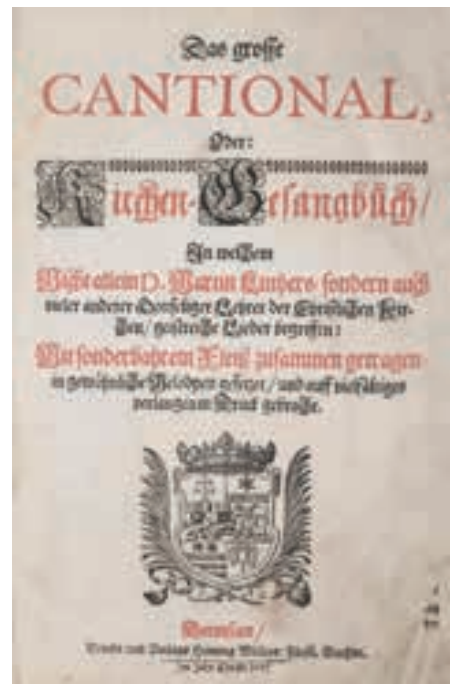 Das grosse
CANTIONAL,
Oder:
Kirchen-Gesangbuch/
In welchem
Nicht allein D. Martin Luthers, sondern auch
vieler anderer Gottseliger Lehrer der Christlichen Kir-
chen/ geistreiche Lieder begriffen:
Mit sonderbahrem Fleiß zusammen getragen
in gewöhnliche Melodyen gesetzet/ und auff vielfältiges
verlangen in Druck gebracht.
Darmstadt/
Druckts Henning Müller, Fürstl. Buchdr.
Im Jahr Christi